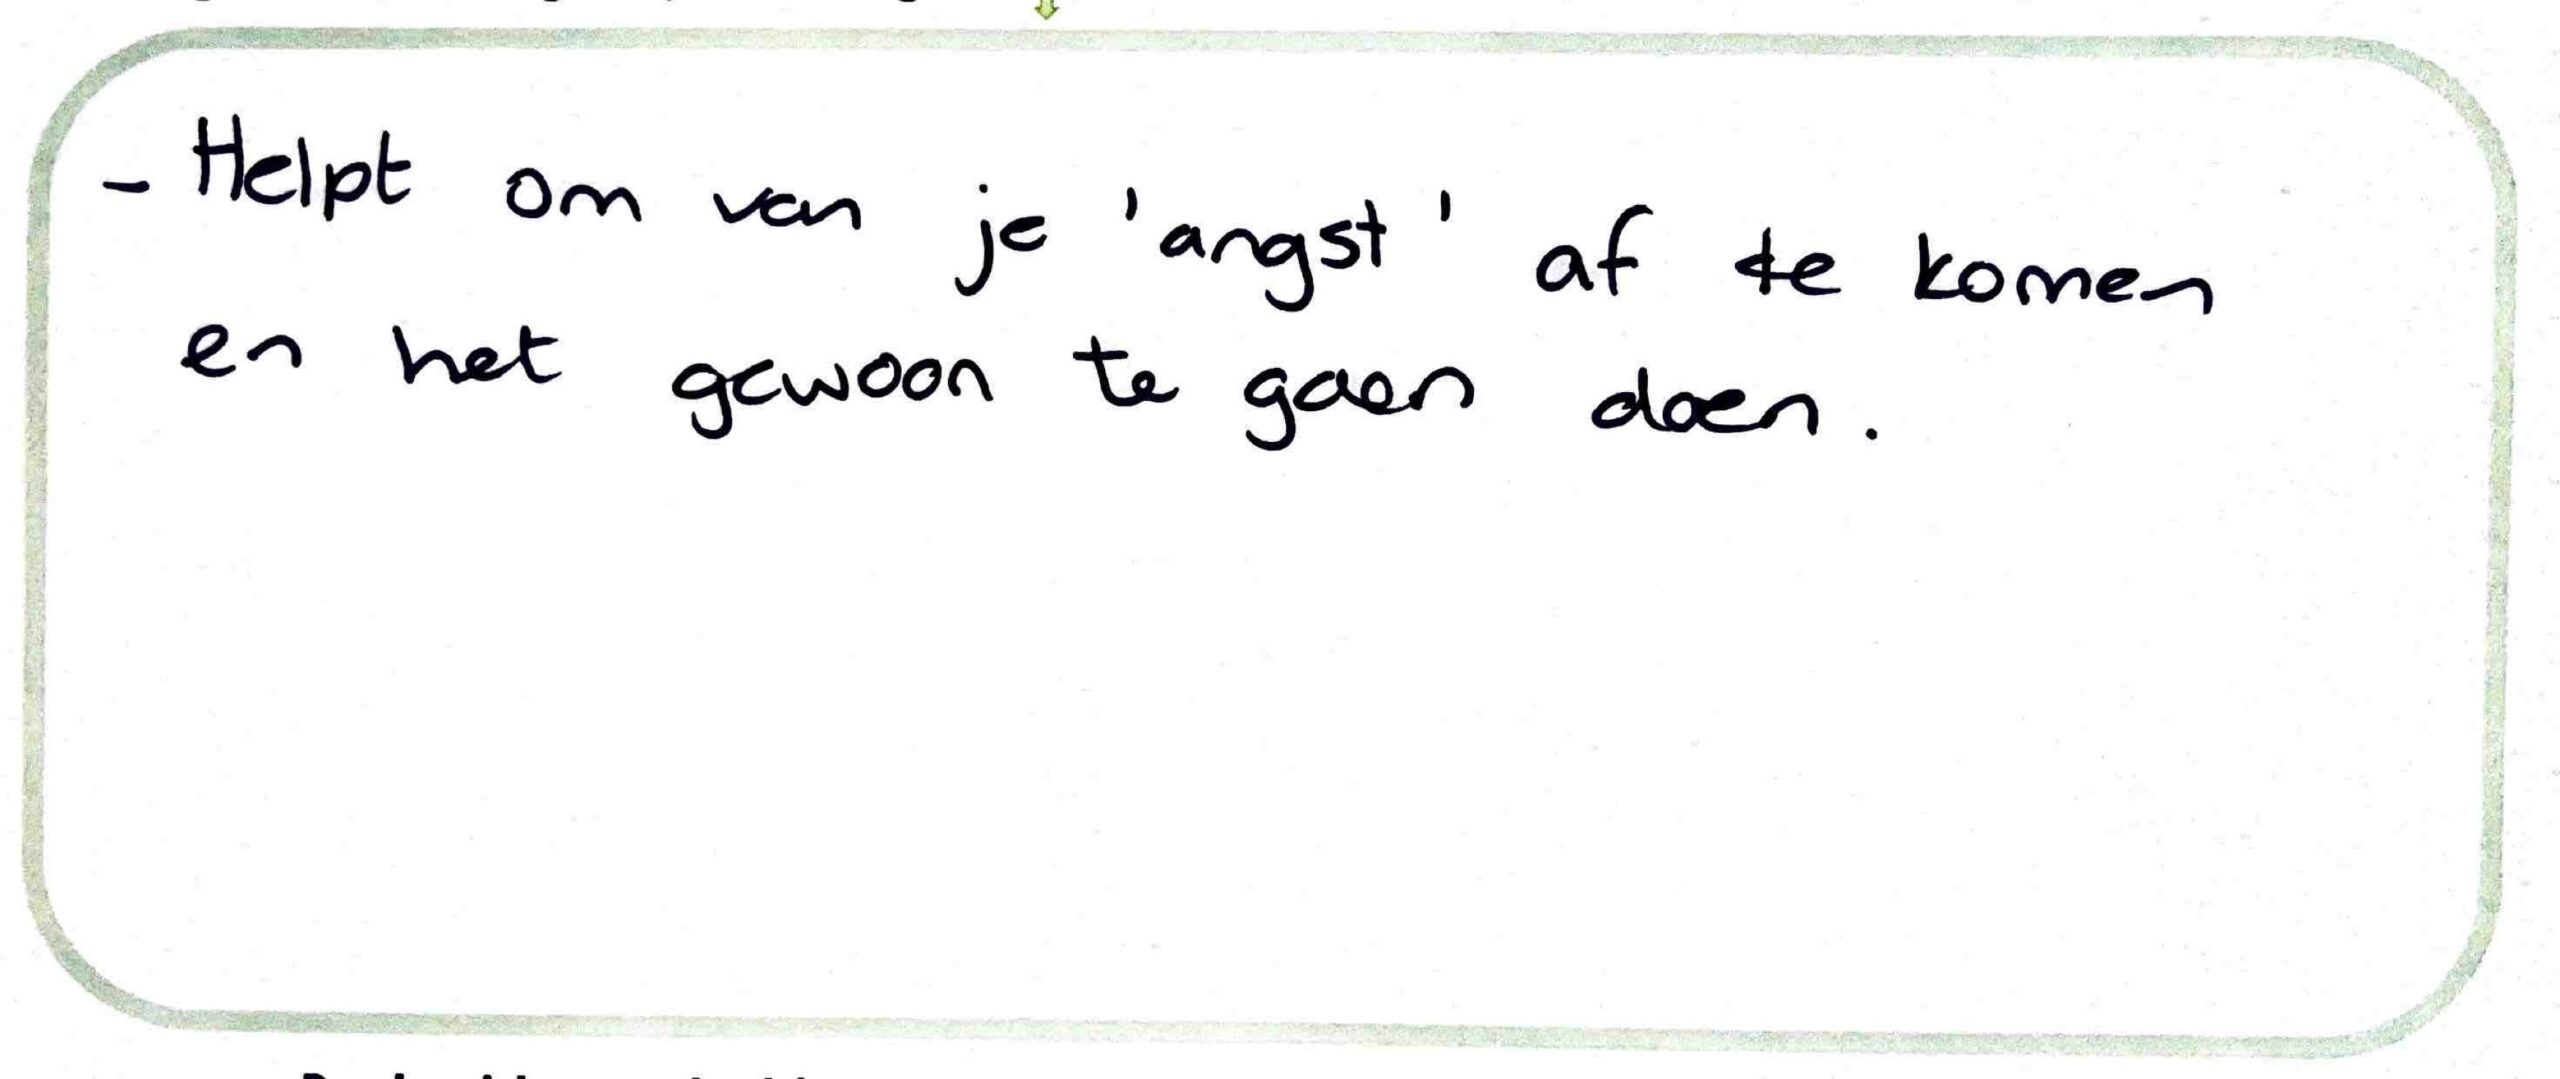 - Helpt om van je 'angst' af te komen
en het gewoon te gaan doen.